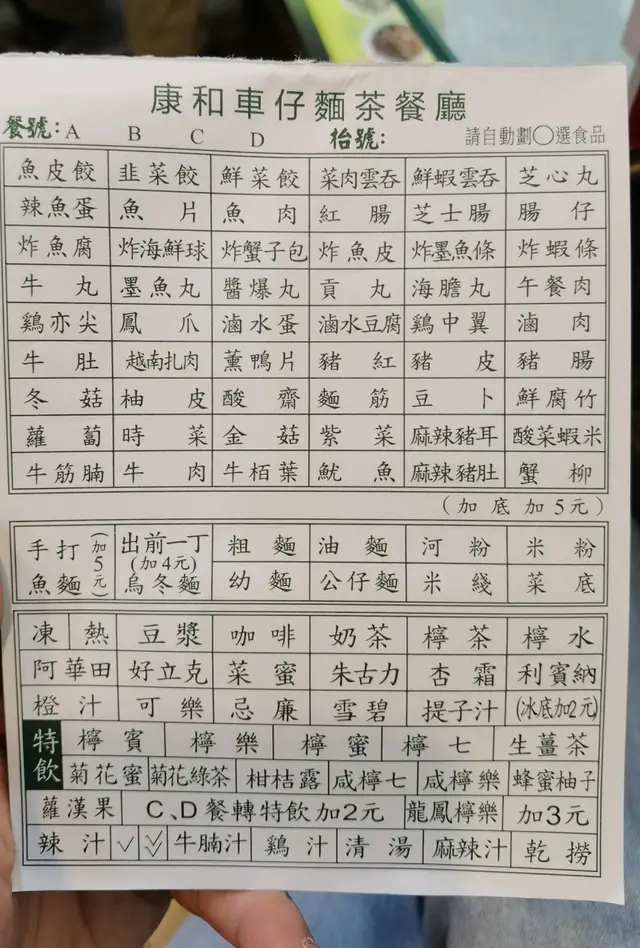 康和車仔麵茶餐廳
餐號: A B C D 枱號: 請自動劃○選食品
魚皮餃 韭菜餃 鮮菜餃 菜肉雲吞 鮮蝦雲吞 芝心丸
辣魚蛋 魚片 魚肉 紅腸 芝士腸 腸仔
炸魚腐 炸海鮮球 炸蟹子包 炸魚皮 炸墨魚條 炸蝦條
牛丸 墨魚丸 醬爆丸 貢丸 海膽丸 午餐肉
鷄亦尖 鳳爪 滷水蛋 滷水豆腐 鷄中翼 滷肉
牛肚 越南扎肉 薰鴨片 豬紅 豬皮 豬腸
冬菇 柚皮 酸齋 麵筋 豆卜 鮮腐竹
蘿蔔 時菜 金菇 紫菜 麻辣豬耳 酸菜蝦米
牛筋腩 牛肉 牛栢葉 魷魚 麻辣豬肚 蟹柳
(加底加5元)
手打魚麵(加5元) 出前一丁 粗麵 油麵 河粉 米粉
(加4元)
烏冬麵 幼麵 公仔麵 米綫 菜底
凍 熱 豆漿 咖啡 奶茶 檸茶 檸水
阿華田 好立克 菜蜜 朱古力 杏霜 利賓納
橙汁 可樂 忌廉 雪碧 提子汁 (冰底加2元)
特飲 檸賓 檸樂 檸蜜 檸七 生薑茶
菊花蜜 菊花綠茶 柑桔露 咸檸七 咸檸樂 蜂蜜柚子
蘿漢果 C、D餐轉特飲加2元 龍鳳檸樂 加3元
辣汁 牛腩汁 鷄汁 清湯 麻辣汁 乾撈